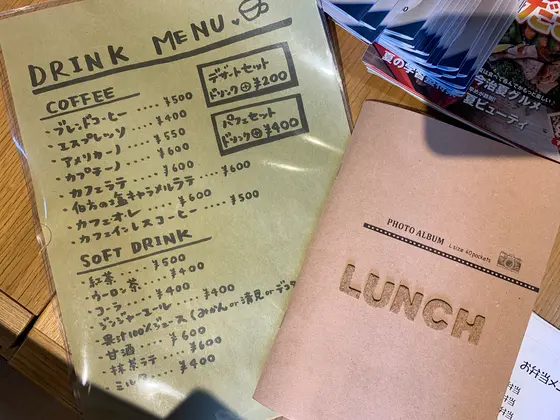 DRINK MENU
デザートセット
ドリンク⊕¥200
パフェセット
ドリンク⊕¥400
COFFEE
・ブレンドコーヒー.....¥500
・エスプレッソ....¥400
・アメリカーノ....¥550
・カプチーノ....¥600
・カフェラテ....¥600
・伯方の塩キャラメルラテ..¥600
・カフェオレ....¥600
・カフェインレスコーヒー...¥500
SOFT DRINK
・紅茶....¥500
・ウーロン茶...¥400
・コーラ....¥400
・ジンジャーエール...¥400
・果汁100%ジュース(みかんor清見orデコ
・甘酒....¥600
・抹茶ラテ...¥600
・ミルク....¥400
PHOTO ALBUM L size 40pockets
LUNCH
夏の学習
今治夏グルメ
夏ビューティ
お弁当メ
弁当
弁当